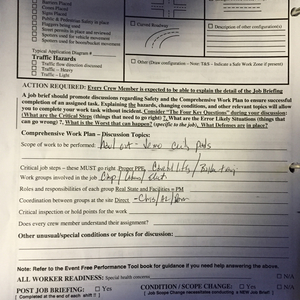 Barriers Placed
Cones Placed
Signs Placed
Public & Pedestrian Safety in place
Flaggers being used
Street permits in place and reviewed
Spotters used for vehicle movement
Spotters used for boom/bucket movement
Typical Application Diagram #
Traffic Hazards
Traffic flow direction discussed
Traffic – Heavy
Traffic – Light
Current Roadway
Description of other configuration(s)
Other (Draw configuration - Note: T&S - Indicate a Safe Work Zone if present)
ACTION REQUIRED: Every Crew Member is expected to be able to explain the detail of the Job Briefing
A job brief should promote discussions regarding Safety and the Comprehensive Work Plan to ensure successful
completion of an assigned task. Explaining the hazards, changing conditions, and other relevant topics will allow
you to complete your task work without incident. Consider "The Four Key Questions" during your discussion:
(What are the Critical Steps (things that need to go right) ?, What are the Error Likely Situations (things that can
go wrong) ?, What is the Worst that can happen? (specific to the job), What Defenses are in place?)
Comprehensive Work Plan – Discussion Topics:
Scope of work to be performed:
Critical job steps – these MUST go right Proper PPE,
Work groups involved in the job
Roles and responsibilities of each group Real State and Facilities = PM
Coordination between groups at the site Direct
Critical inspection or hold points for the work
Does every crew member understand their assignment?
Other unusual/special conditions or topics for discussion:
Note: Refer to the Event Free Performance Tool book for guidance if you need help answering the above.
ALL WORKER READINESS: Special health concerns N/A
POST JOB BRIEFING: Yes
[ Completed at the end of each shift !! ]
CONDITION / SCOPE CHANGE: Yes N/A
[ Job Scope Change necessitates conducting a NEW Job Brief ]